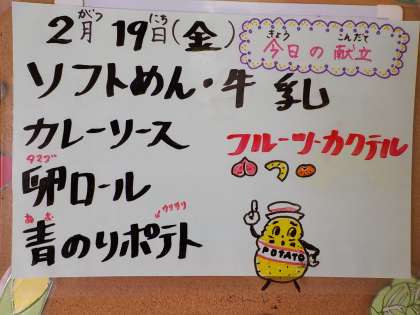 2月19日(金)
がつ にち
きょう こんだて
今日の献立
ソフトめん・牛乳
カレーソース
フルーツカクテル
タマゴ
卵ロール
あお
クリクリ
青のりポテト
POTATO